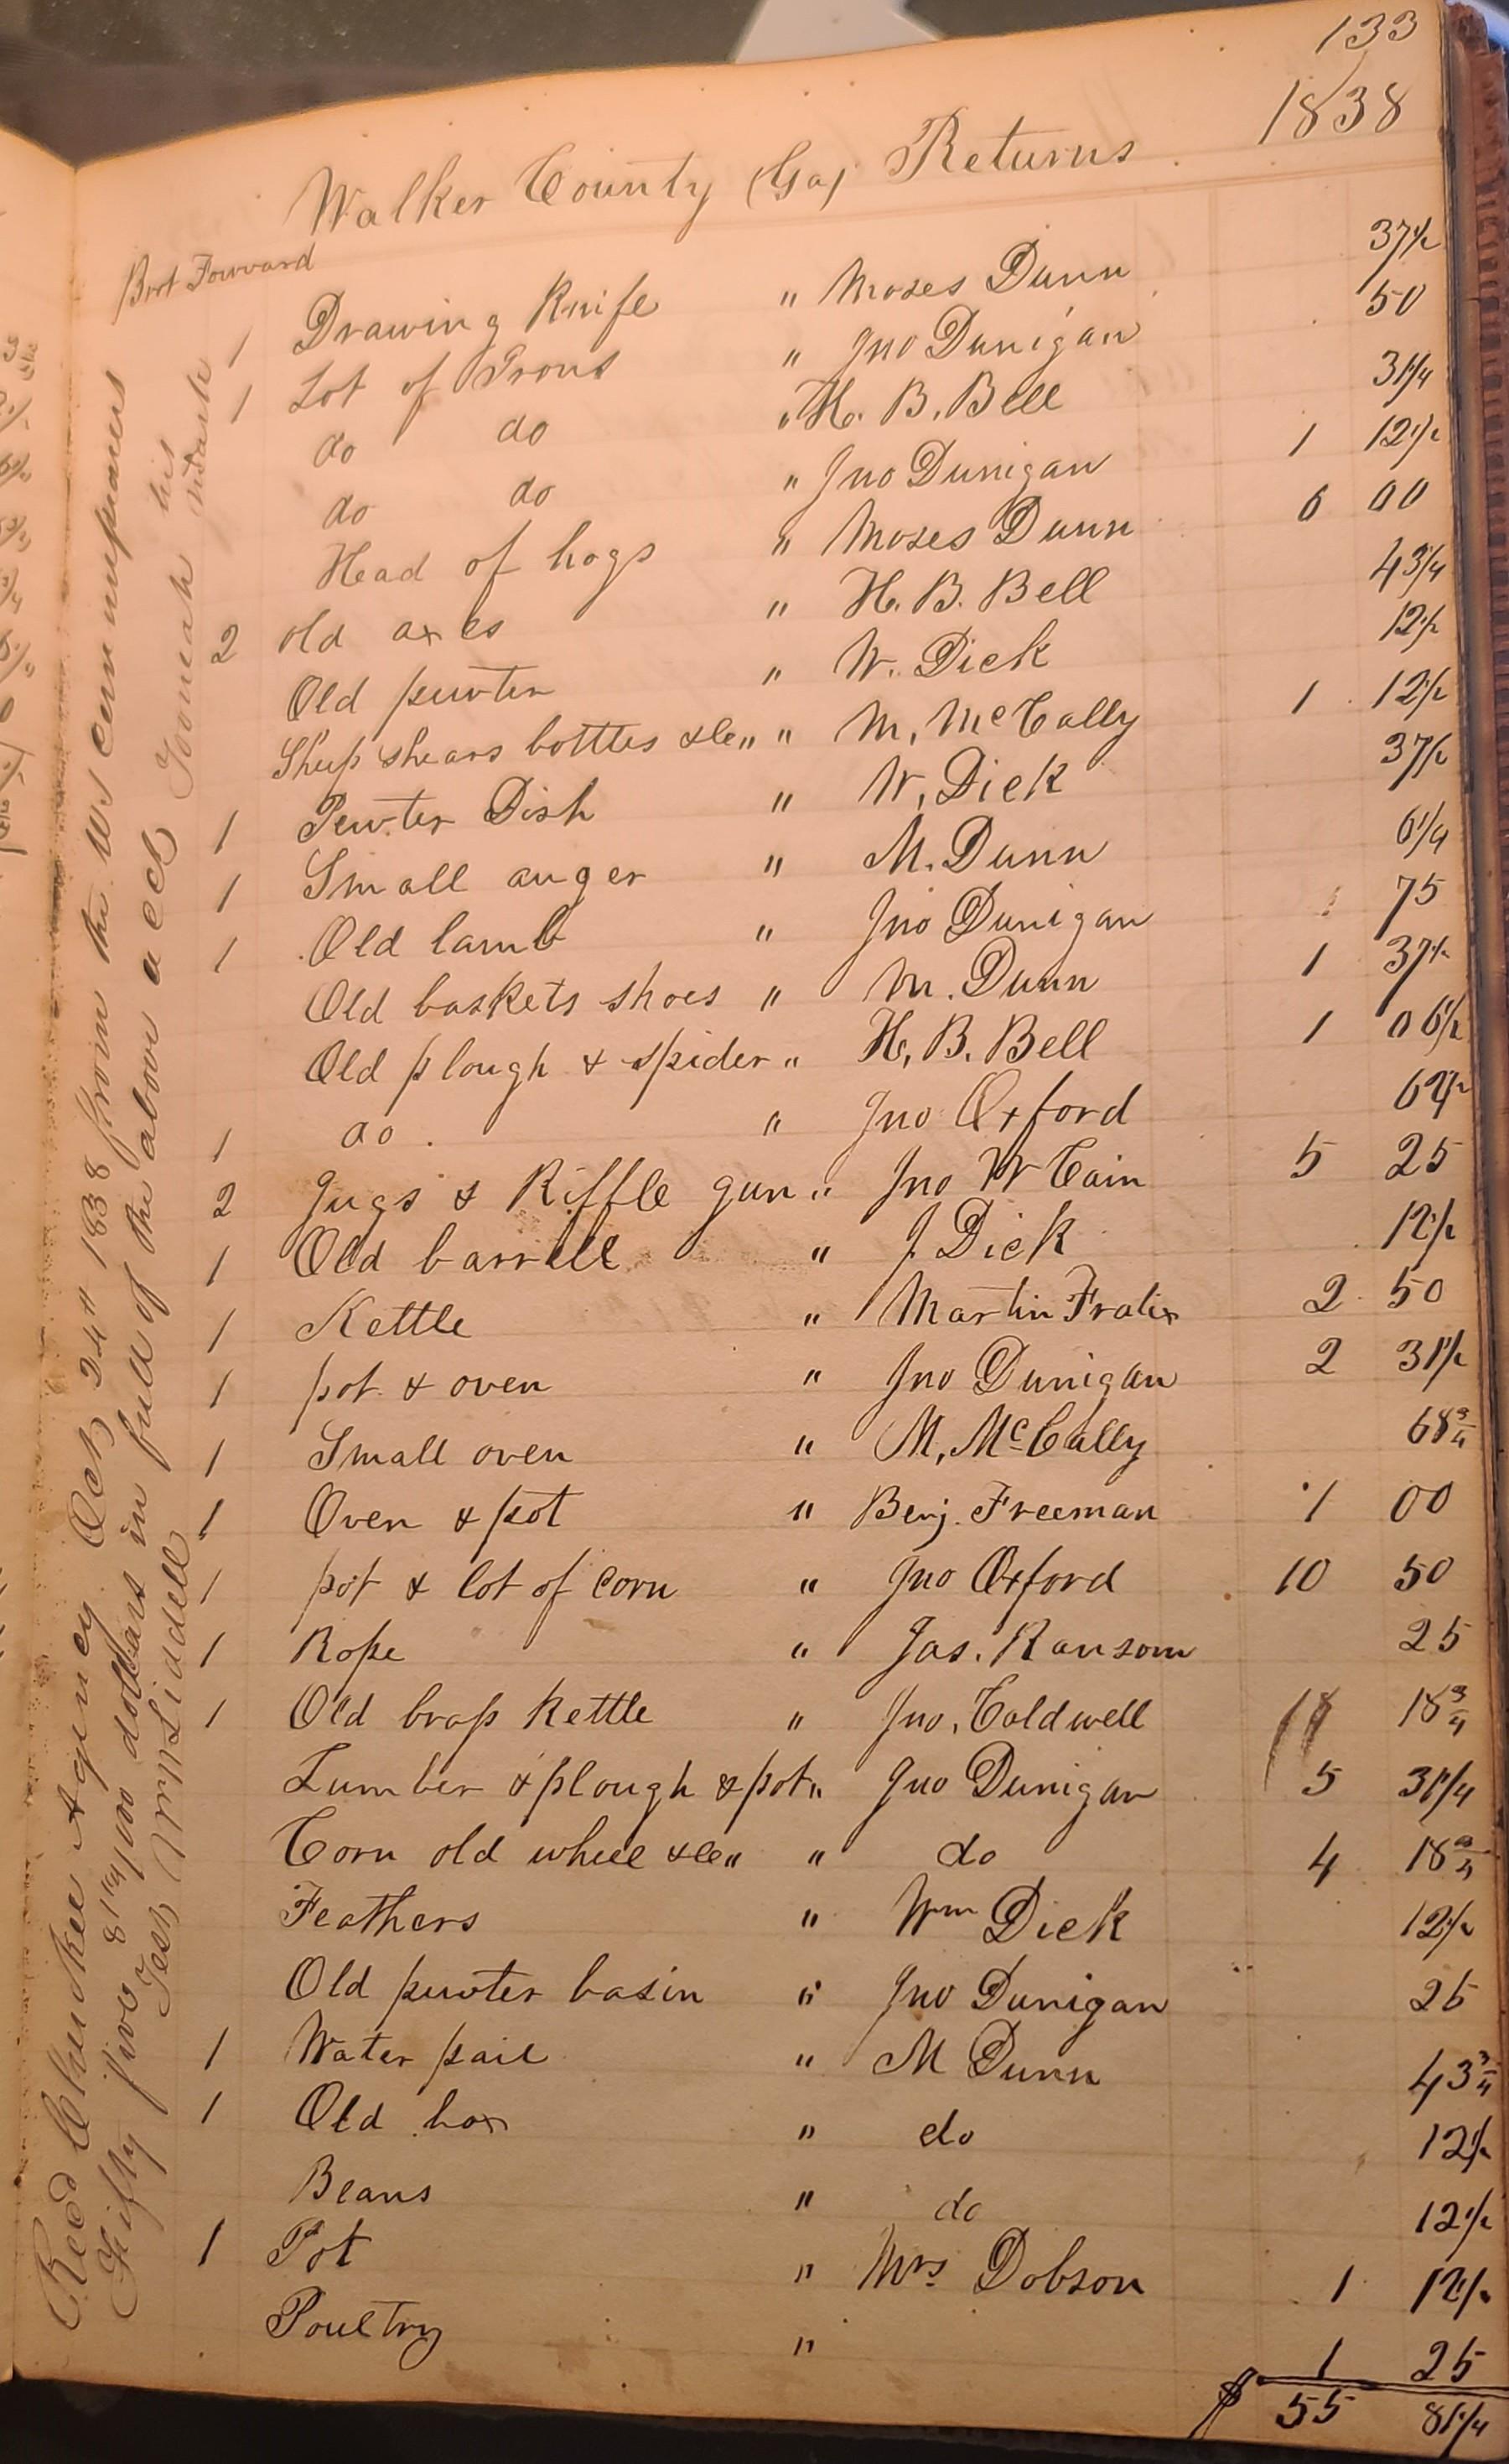 133
1838
Walker County (Ga) Returns
Brot Forward
1 Drawing Knife " Moses Dunn 37 1/2
1 Lot of Irons " Jno Dunigan 50
do do " H. B. Bell 31 1/4
do do " Jno Dunigan 1 12 1/2
Head of hogs " Moses Dunn 6 00
2 old axes " H. B. Bell 43 3/4
Old pewter " W. Dick 12 1/2
Sheep shears bottles &c " " M. McCally 1 12 1/2
1 Pewter Dish " W. Dick 37 1/2
1 Small auger " M. Dunn 6 1/4
1 Old lamb " Jno Dunigan 75
Old baskets shoes " M. Dunn 1 37 1/2
Old plough & spider " H. B. Bell 1 06 1/2
1 do. " Jno Oxford 62 1/2
2 Jugs & Riffle gun " Jno W Cain 5 25
1 Old barrell " J. Dick 12 1/2
1 Kettle " Martin Fratix 2 50
1 pot & oven " Jno Dunigan 2 31 1/2
1 Small oven " M. McCally 68 3/4
1 Oven & pot " Benj. Freeman 1 00
1 pot & lot of Corn " Jno Oxford 10 50
1 Rope " Jas. Ransom 25
1 Old brass Kettle " Jno. Coldwell 18 3/4
Lumber & plough & pot " Jno Dunigan 5 31 1/4
Corn old wheel &c " " do 4 18 3/4
Feathers " Wm Dick 12 1/2
Old pewter basin " Jno Dunigan 25
1 Water pail " M Dunn 43 3/4
1 Old box " do 12 1/2
Beans " do 12 1/2
1 Pot " Mrs Dobson 1 12 1/2
Poultry " 1 25
$ 55 81 1/4
Recd Cherokee Agency Oct 24" 1838 from the US
Fifty five 81 1/4/100 dollars in full of the above acct his mark
Test Wm Liddell